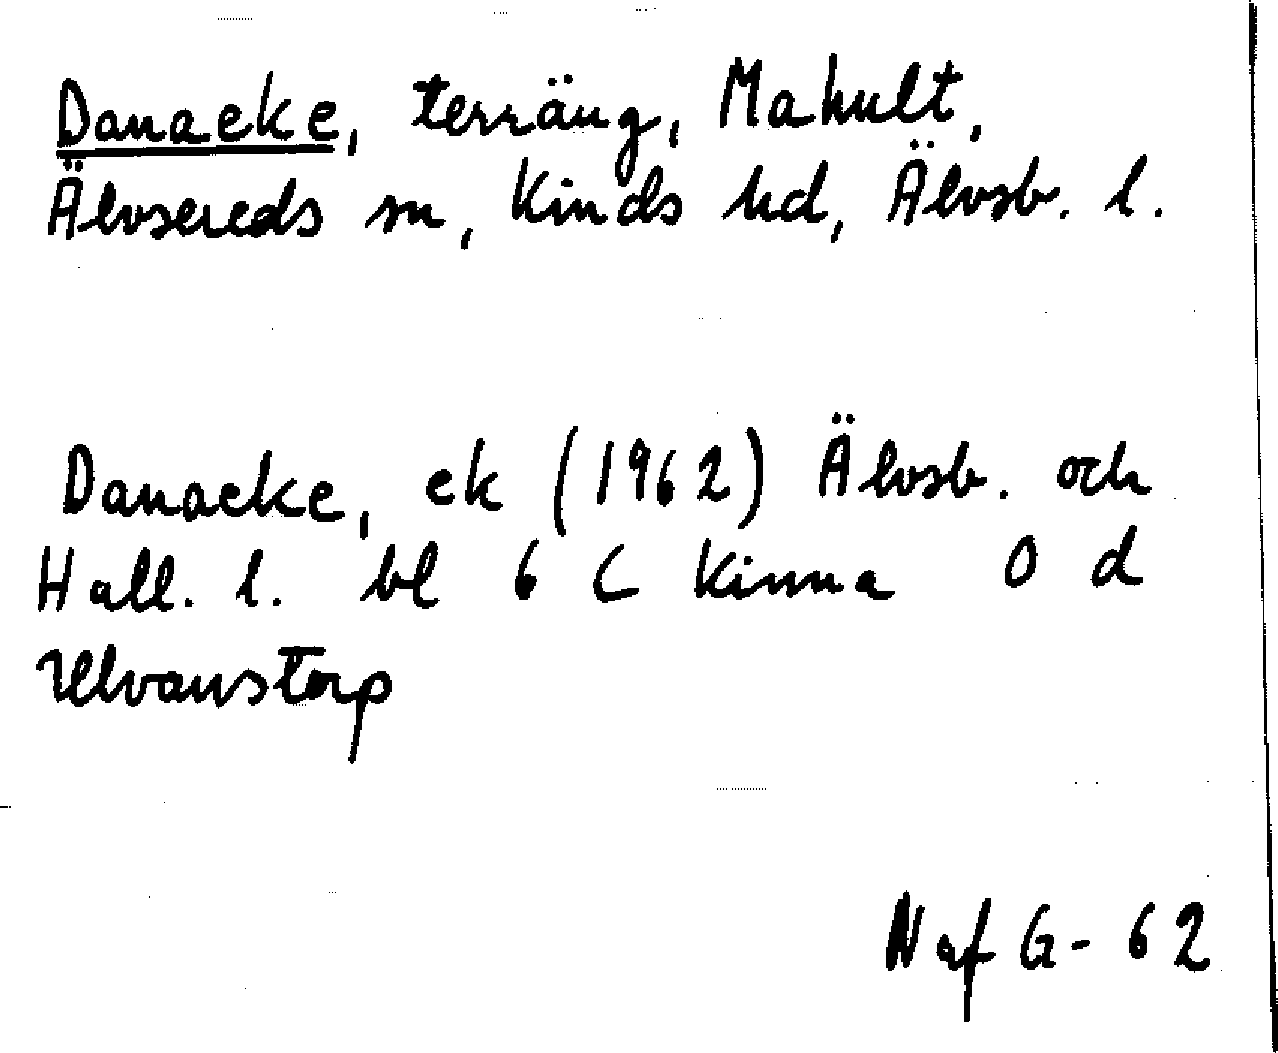 Danaeke, terräng, Mahult,
Älvsereds sn, Kinds hd, Älvsb. l.
Danaeke, ek (1962) Älvsb. och
Hall. l. bl 6 C Kinna O d
Ulvanstorp
Naf G-62